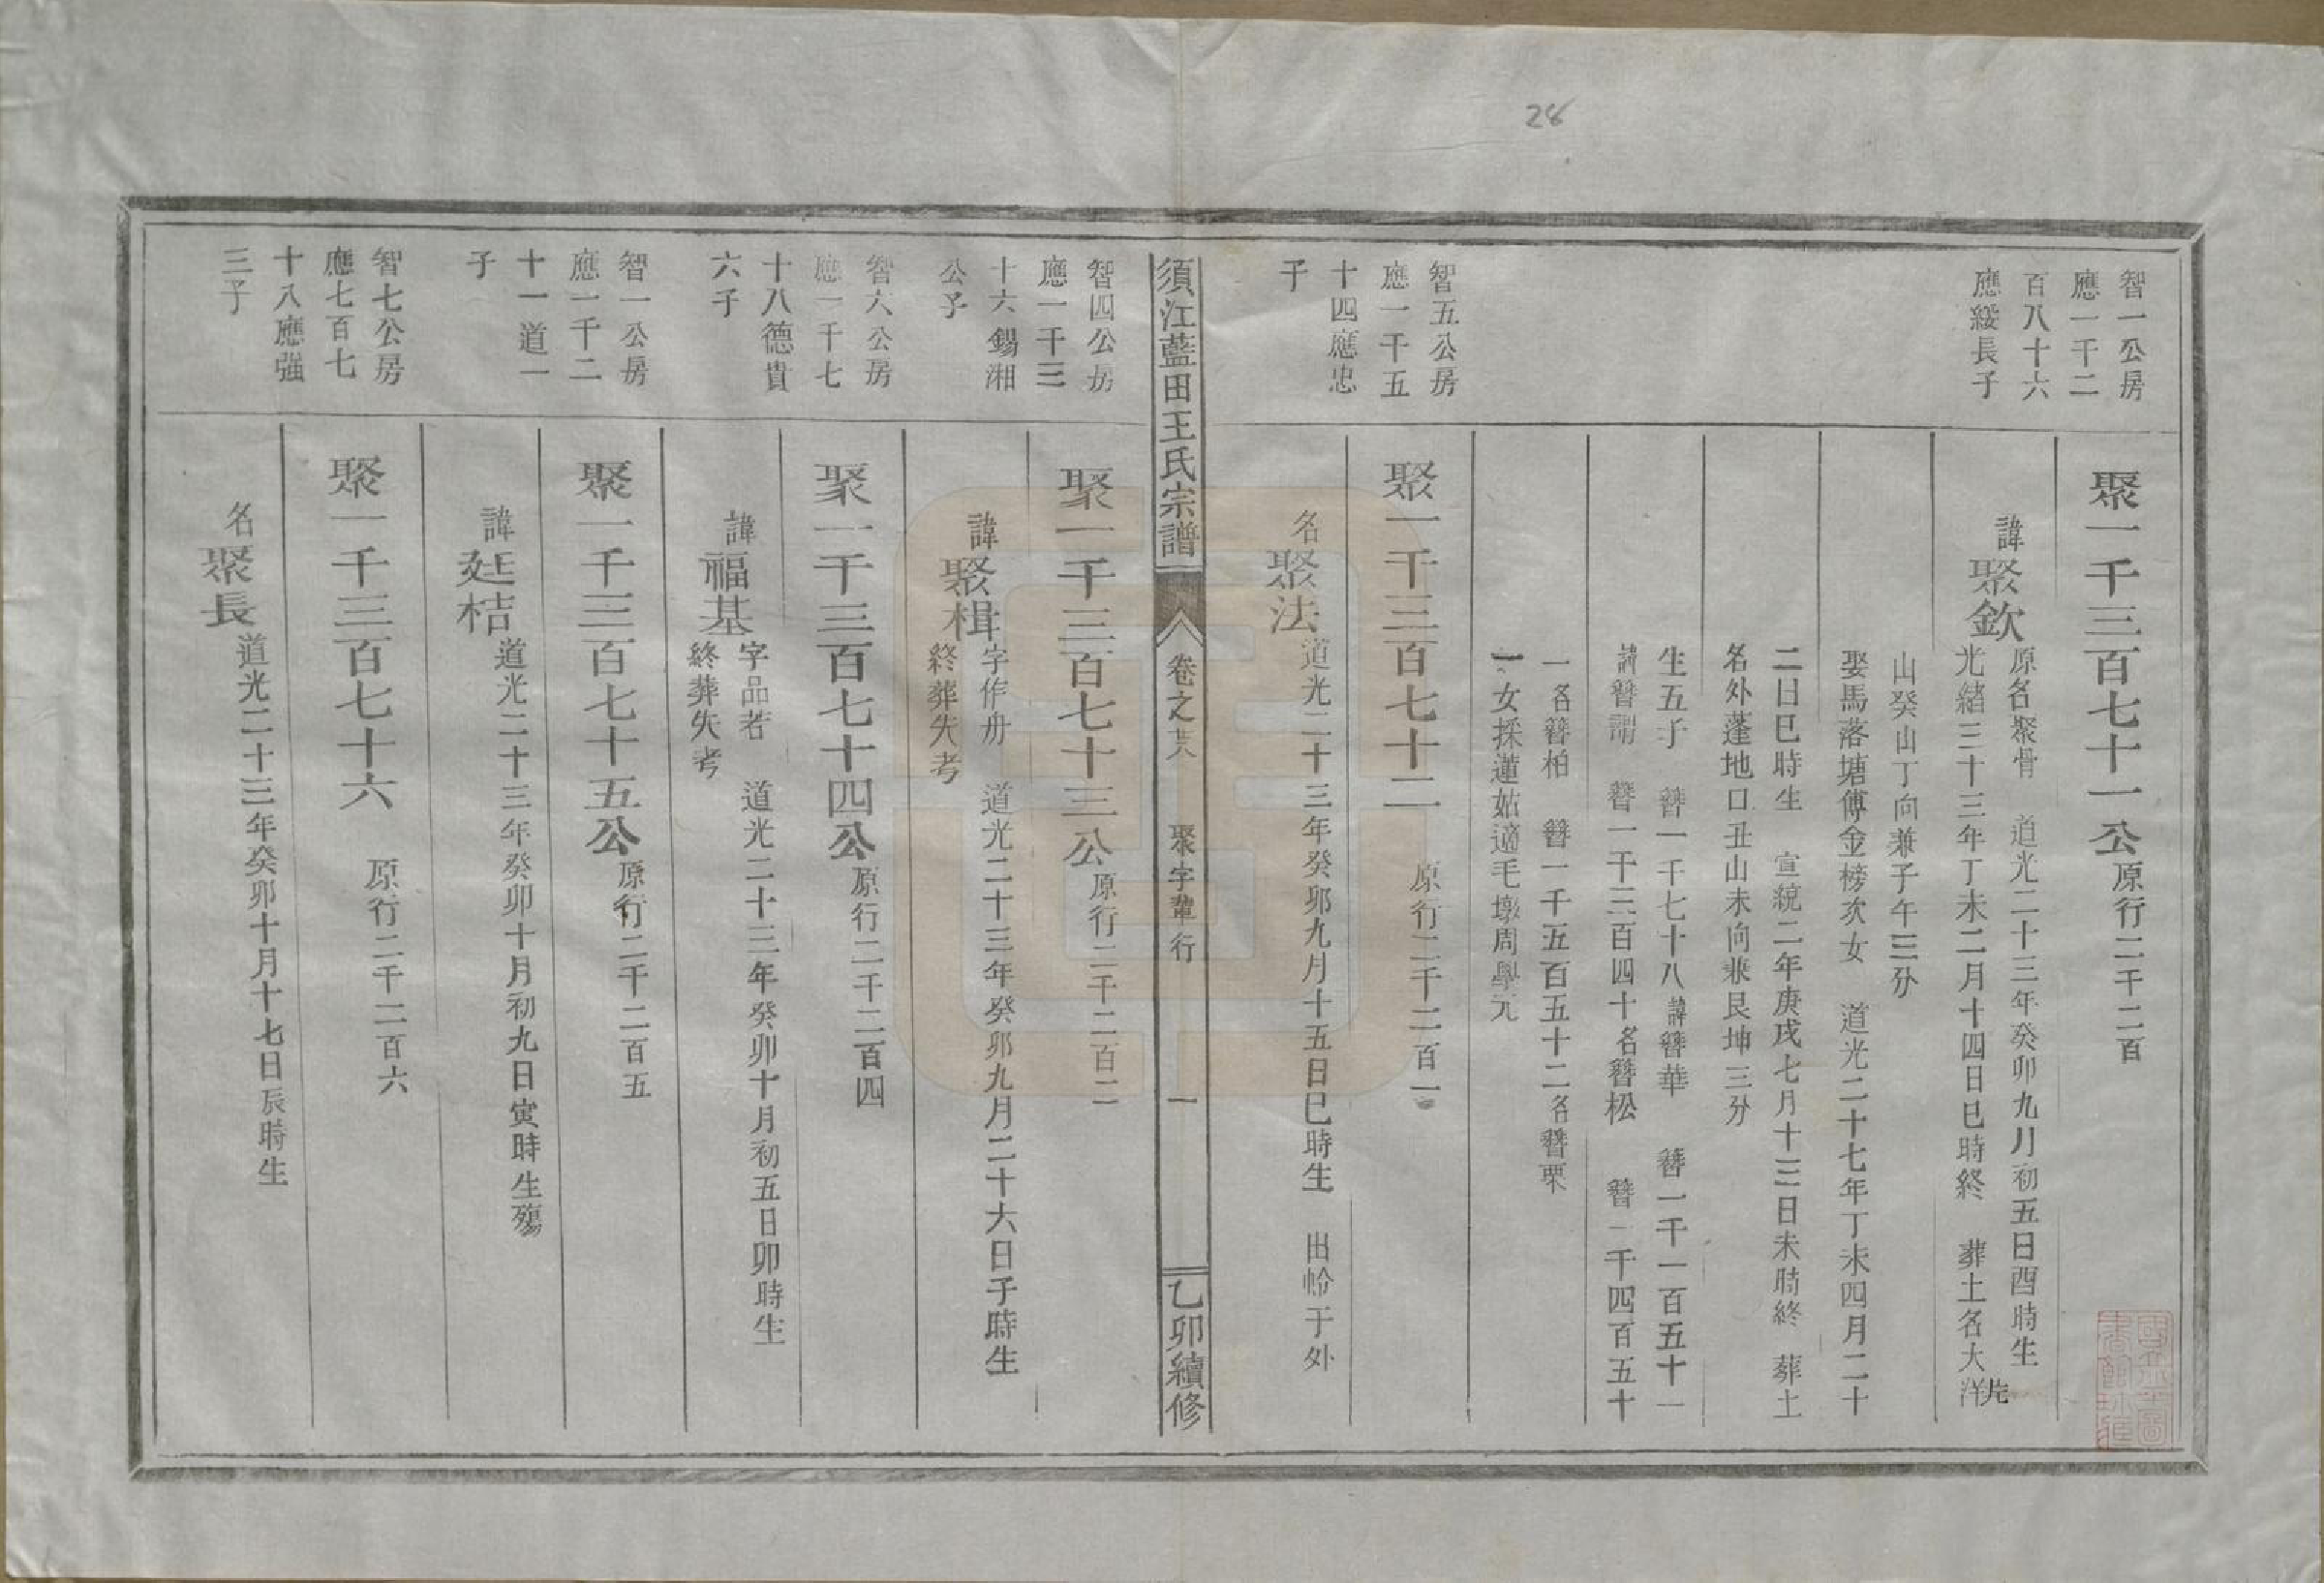 28
智一公房
應一千二
百八十六
應綏長子
聚一千三百七十一公 原行二千二百
諱聚欽 原名聚骨 道光二十三年癸卯九月初五日酉時生
光緒三十三年丁未二月十四日巳時終 葬土名大洋垅
山癸山丁向兼子午三分
娶馬落塘傅金榜次女 道光二十七年丁未四月二十
二日巳時生 宣統二年庚戌七月十三日未時終 葬土
名外蓬地口丑山未向兼艮坤三分
生五子 簪一千七十八諱簪華 簪一千一百五十一
諱簪 簪一千三百四十名簪松 簪一千四百五十
一名簪柏 簪一千五百五十二名簪栗
一女採蓮姑適毛墩周學元
智五公房
應一千五
十四應忠
子
聚一千三百七十二 原行二千二百一
名聚法 道光二十三年癸卯九月十五日巳時生 出于外
須江藍田王氏宗譜
卷之 聚字輩行 一
乙卯續修
智四公房
應一千三
十六錫湘
公子
聚一千三百七十三公 原行二千二百二
諱聚楫 字作舟 道光二十三年癸卯九月二十六日子時生
終葬失考
智六公房
應一千七
十八德貴
六子
聚一千三百七十四公 原行二千二百四
諱福基 字品若 道光二十三年癸卯十月初五日卯時生
終葬失考
智一公房
應一千二
十一道一
子
聚一千三百七十五公 原行二千二百五
諱延桔 道光二十三年癸卯十月初九日寅時生殤
智七公房
應七百七
十八應强
三子
聚一千三百七十六 原行二千二百六
名聚長 道光二十三年癸卯十月十七日辰時生